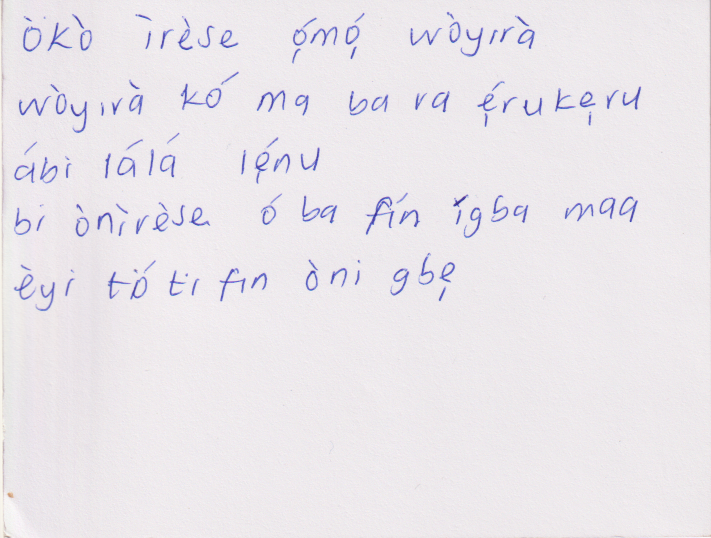 Òkò ìrèse ọ́mọ́ wòyırà
wòyırà kó ma ba ra ẹ́rukẹru
ábì lálá lẹ́nu
bi ònìrèse ó ba fín ígba maa
èyi tó ti fın òni gbẹ